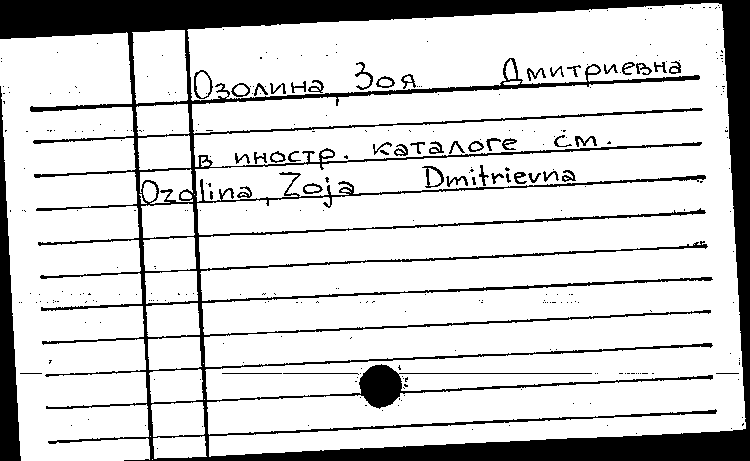 Озолина, Зоя Дмитриевна
в иностр. каталоге см.
Ozolina, Zoja Dmitrievna